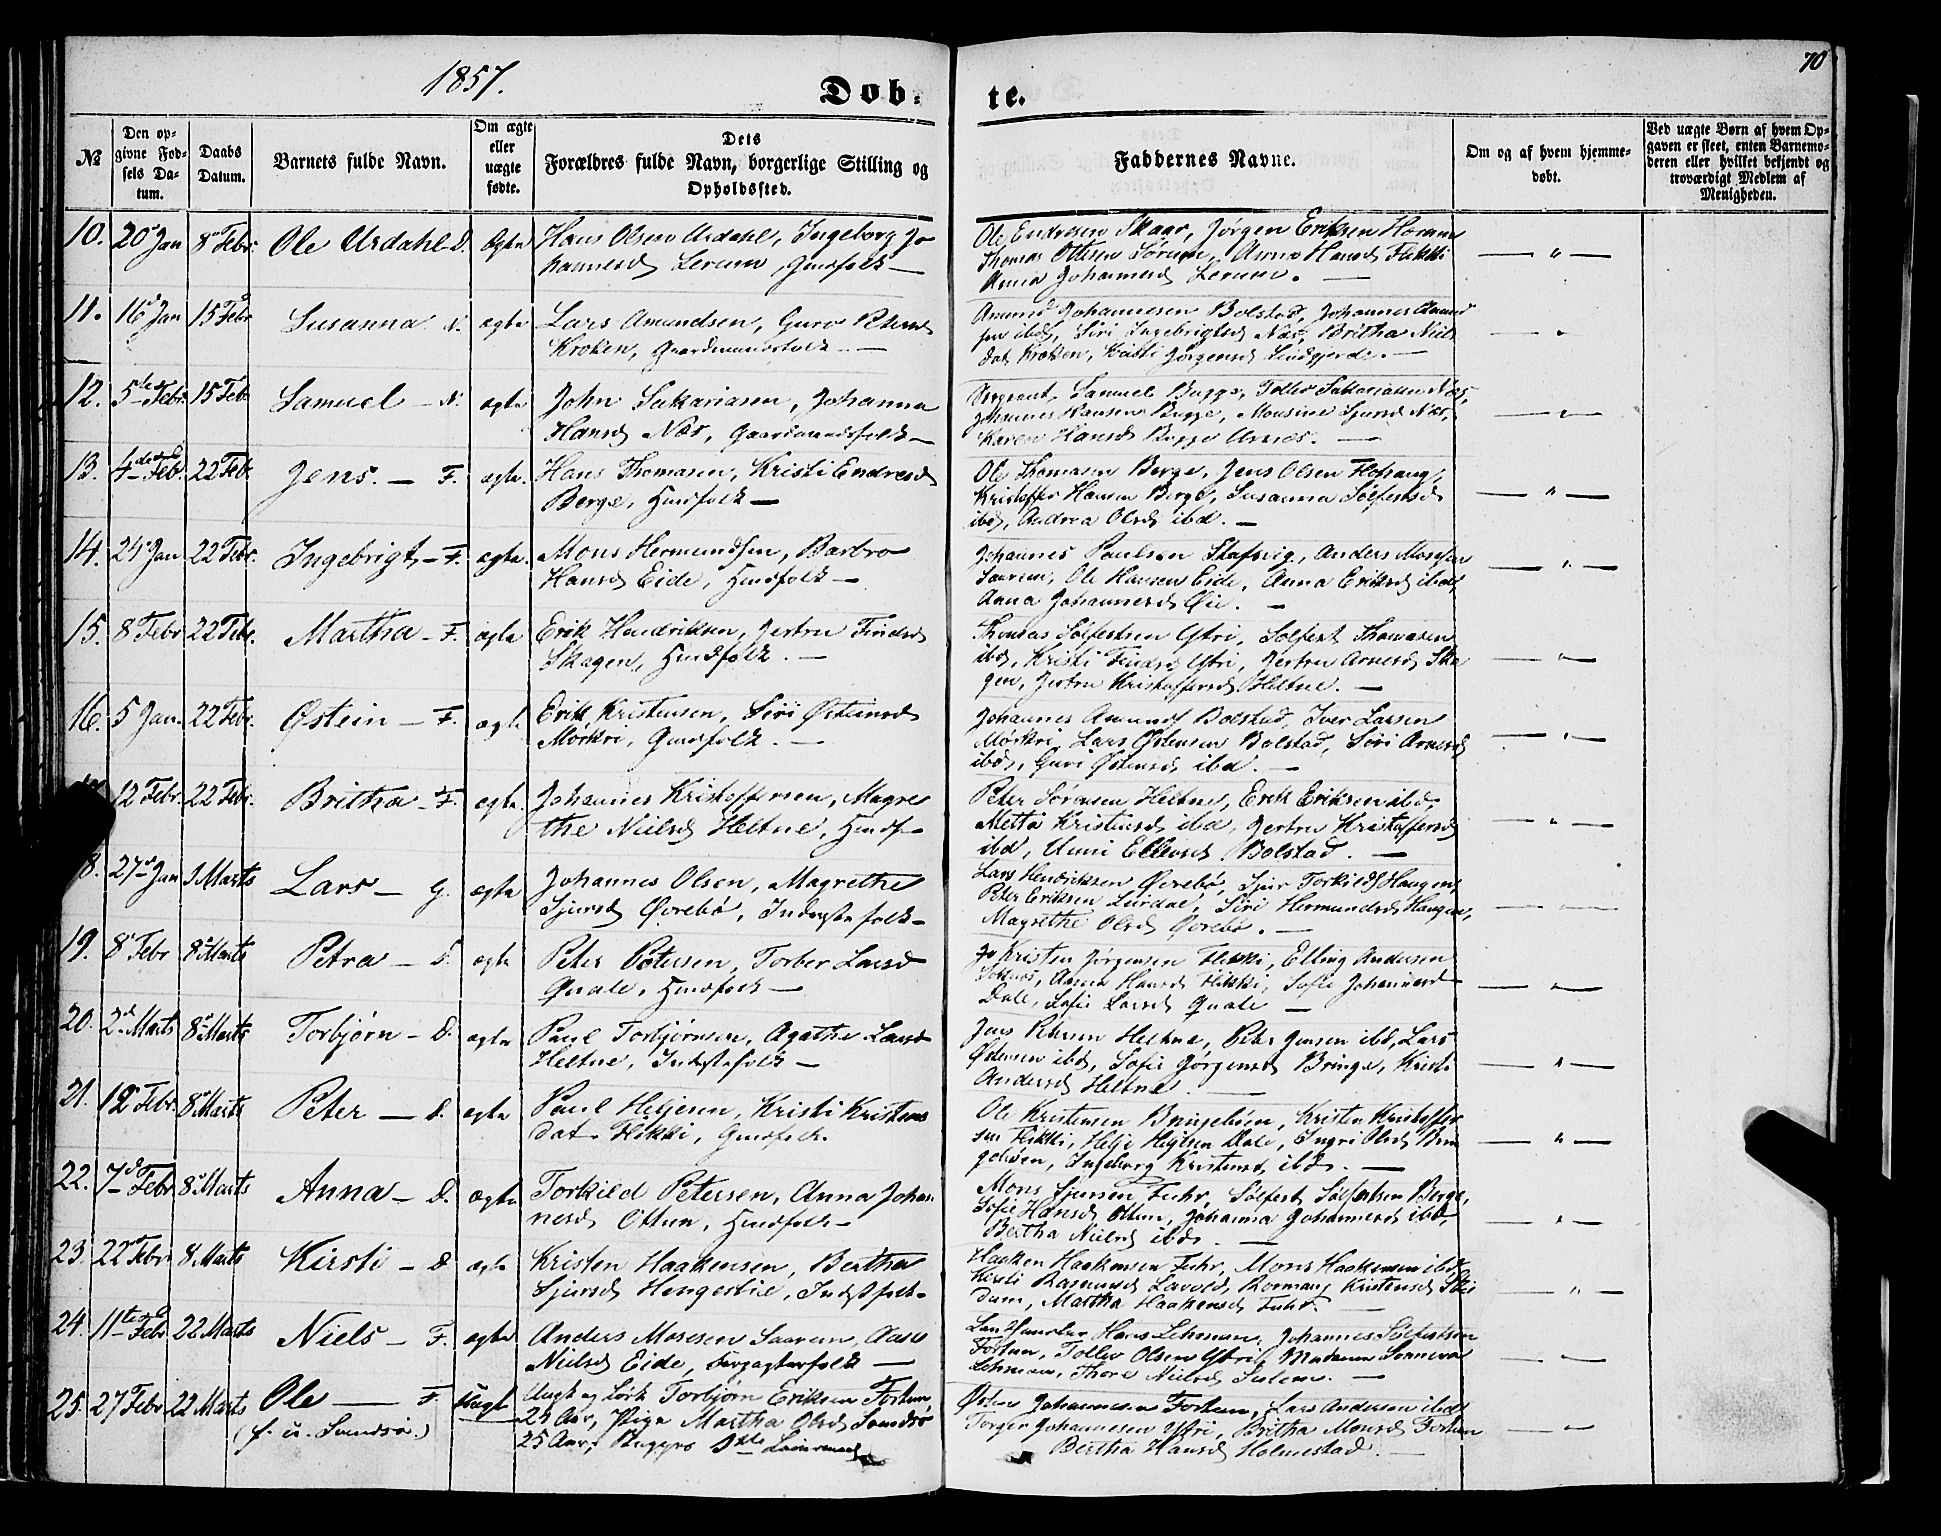 1857.
70
Døb-
te.
№
Den op-
givne Fød-
sels Da-
tum.
Daabs
Datum.
Barnets fulde Navn.
Om ægte
eller
uægte
fødte.
Dets
Forældres fulde Navn, borgerlige Stilling og
Opholdssted.
Faddernes Navne.
Om og af hvem hjemme-
døbt.
Ved uægte Børn af hvem Op-
gaven er skeet, enten Barnemo-
deren eller hvilket bekjendt og
troværdigt Medlem af
Menigheden.
10. 20 Jan 8 Febr. Ole Urdahl D. ægte Hans Olsen Urdahl, Ingeborg Jo
hannesd Lerum, Gmdfolk —
Ole Endresen Skaar, Jørgen Eriksen
Thomas Ottesen Sørum, Anna Hansd Flikki
Anna Johannesd Lerum. —
11. 16 Jan 15 Febr Susanna N. ægte Lars Amundsen, Guro Petersd
Kroken, Gaardmandsfolk —
Amund Johannesen Bolstad, Johannes Amund
sen ibd, Siri Ingebrigtsd Næs, Britha Niels
dat Kroken, Kristi Jørgensd —
12. 5 Febr. 15 Feb Samuel — N. ægte John Sakariasen, Johanna
Hansd Næs, Gaardmandsfolk —
Sergeant Samuel Bugge, Tollev Sakariasen Næs,
Johannes Hansen Bugge, Monsine Sjursd Næs,
Karen Hansd Bugge Arnæs. —
13. 4 Feb. 22 Feb Jens. — F. ægte. Hans Thomasen, Kristi Endresd
Berge, Hmdfolk —
Ole Thomasen Berge, Jens Olsen
Kristoffer Hansen Berge, Susanna Sølfestsd
ibd, Andrea Olsd ibd. —
14. 24 Jan 22 Febr. Ingebrigt — F. ægte. Mons Hermundsen, Barbro
Hansd Eide, Hmdfolk —
Johannes Paulsen Anders Mosesen
Saarem, Ole Hansen Eide, Anna Eriksd ibd,
Anna Johannesd Øie. —
15. 8 Febr 22 Feb. Martha — F. ægte Erik Hendriksen, Jertru Findsd
Skagen, Hmdfolk. —
Thomas Sølfestsen Ytri, Solfest Thomasen
ibd, Kristi Findsd Ytri, Jertru Arnesd Ska
gen, Jertru Kristoffersd Heltne. —
16. 5 Jan. 22 Febr. Østein — F. ægt. Erik Kristensen, Siri Østensd
Mørkri, Gmdfolk. —
Johannes Amunds Bolstad, Iver Larsen
Mørkri, Lars Østensen Bolstad, Siri Arnesd
ibd, Guri Østensd ibd. —
12 Febr. 22 Febr. Britha — F. ægte. Johannes Kristoffersen, Magre
the Nielsd Heltne, Hmdf —
Peter Sørensen Heltne, Erik Eriksen ibd,
Metta Kristensd ibd, Jertru Kristoffersd
ibd, Unni Ellevsd Bolstad. —
8. 27 Jan 1 Marts Lars — G. ægte Johannes Olsen, Magrethe
Sjursd Øvrebø, Inderstefolk —
Lars Hendriksen Øvrebø, Sjur Torkilds Haugen,
Peter Eriksen Lurdal, Siri Hermundsd Haugen,
Magrethe Olsd Øvrebø. —
19. 8 Febr 8 Marts Petra — D. ægte Peter Petersen, Torber Larsd
Quale, Hmdfolk —
Kristen Jørgensen Flikki, Elling Andersen
Anna Hansd Flikki, Sofie Johannesd
Dale, Sofie Larsd Quale —
20. 2 Marts 8 Marts Torbjørn — D. ægte Paul Torbjørnsen, Agathe Larsd
Heltne, Inderstefolk —
Jens Petersen Heltne, Peter Jensen ibd, Lars
Østensen ibd, Sofie Jørgensd Bringe, Kristi
Andersd Heltne. —
21. 12 Febr. 8 Marts Peter — D. ægte Paul Heljesen, Kristi Kristens
dat. Flikki, Gmdfolk.
Ole Kristensen Bringebøen, Kristen Kristoffer
sen Flikki, Helje Heljesen Dale, Ingri Olsd Brin
gebøen, Ingeborg Kristensd ibd. —
22. 7 Febr 8 Marts Anna — D. ægte Torkild Petersen, Anna Johan
nesd Ottun, Hmdfolk —
Mons Sjursen Fuhr, Sølfest Sølfestsen Berge,
Sofie Hansd Ottun, Johanna Johannesd ibd,
Bertha Nielsd ibd. —
23. 22 Febr 8 Marts Kirsti — D ægte Kristen Haakensen, Bertha
Sjursd Hengestie, Indstfolk —
Haaken Haakensen Fuhr, Mons Haakensen ibd,
Kirsti Rasmusd Kristensd Ski
dum, Martha Haakensd Fuhr. —
24. 11 Febr 22 Marts Niels — F. ægte Anders Mosesen Saarem, Aase
Nielsd Eide, Forpagterfolk —
Landhandler Hans Lehmann, Johannes Sølfestsen
Fortun, Tollev Olsen Ytri, Madame Sunneva
Lehmann, Thore Nielsd —
25. 27 Febr 22 Marts Ole — F. uægt Ungk og Torbjørn Eriksen Fortun,
(f. u. Svensøe.) 24 Aar, Pige Martha Olsd
25 Aar, Begges 1ste Leiermaal
Østen Johannesen Fortun, Lars Andersen ibd,
Torger Johannesen Ytri, Britha Monsd Fortun
Bertha Hansd Holmestad. —